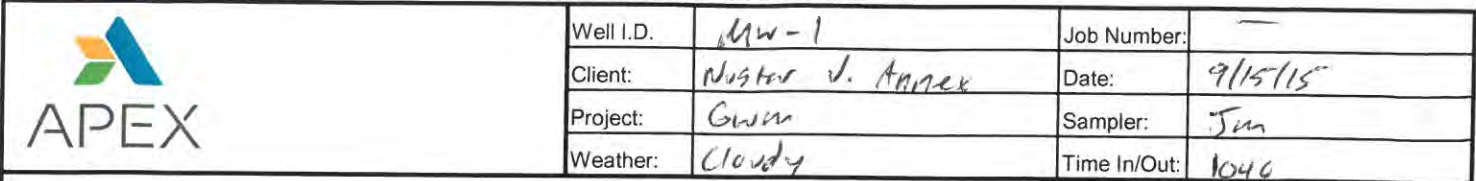 APEX
Well I.D. MW-1 Job Number: —
Client: Nustar V. Annex Date: 9/15/15
Project: GWM Sampler: Jm
Weather: Cloudy Time In/Out: